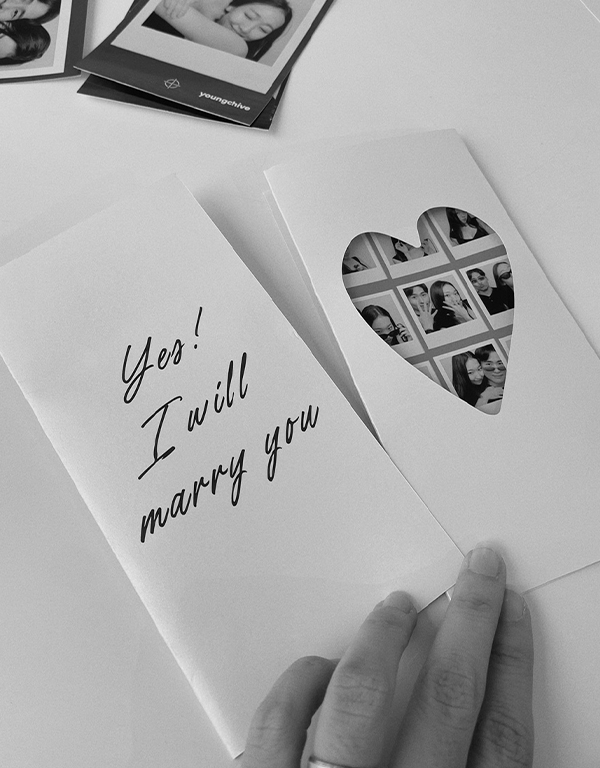 youngchive
Yes!
I will
marry you